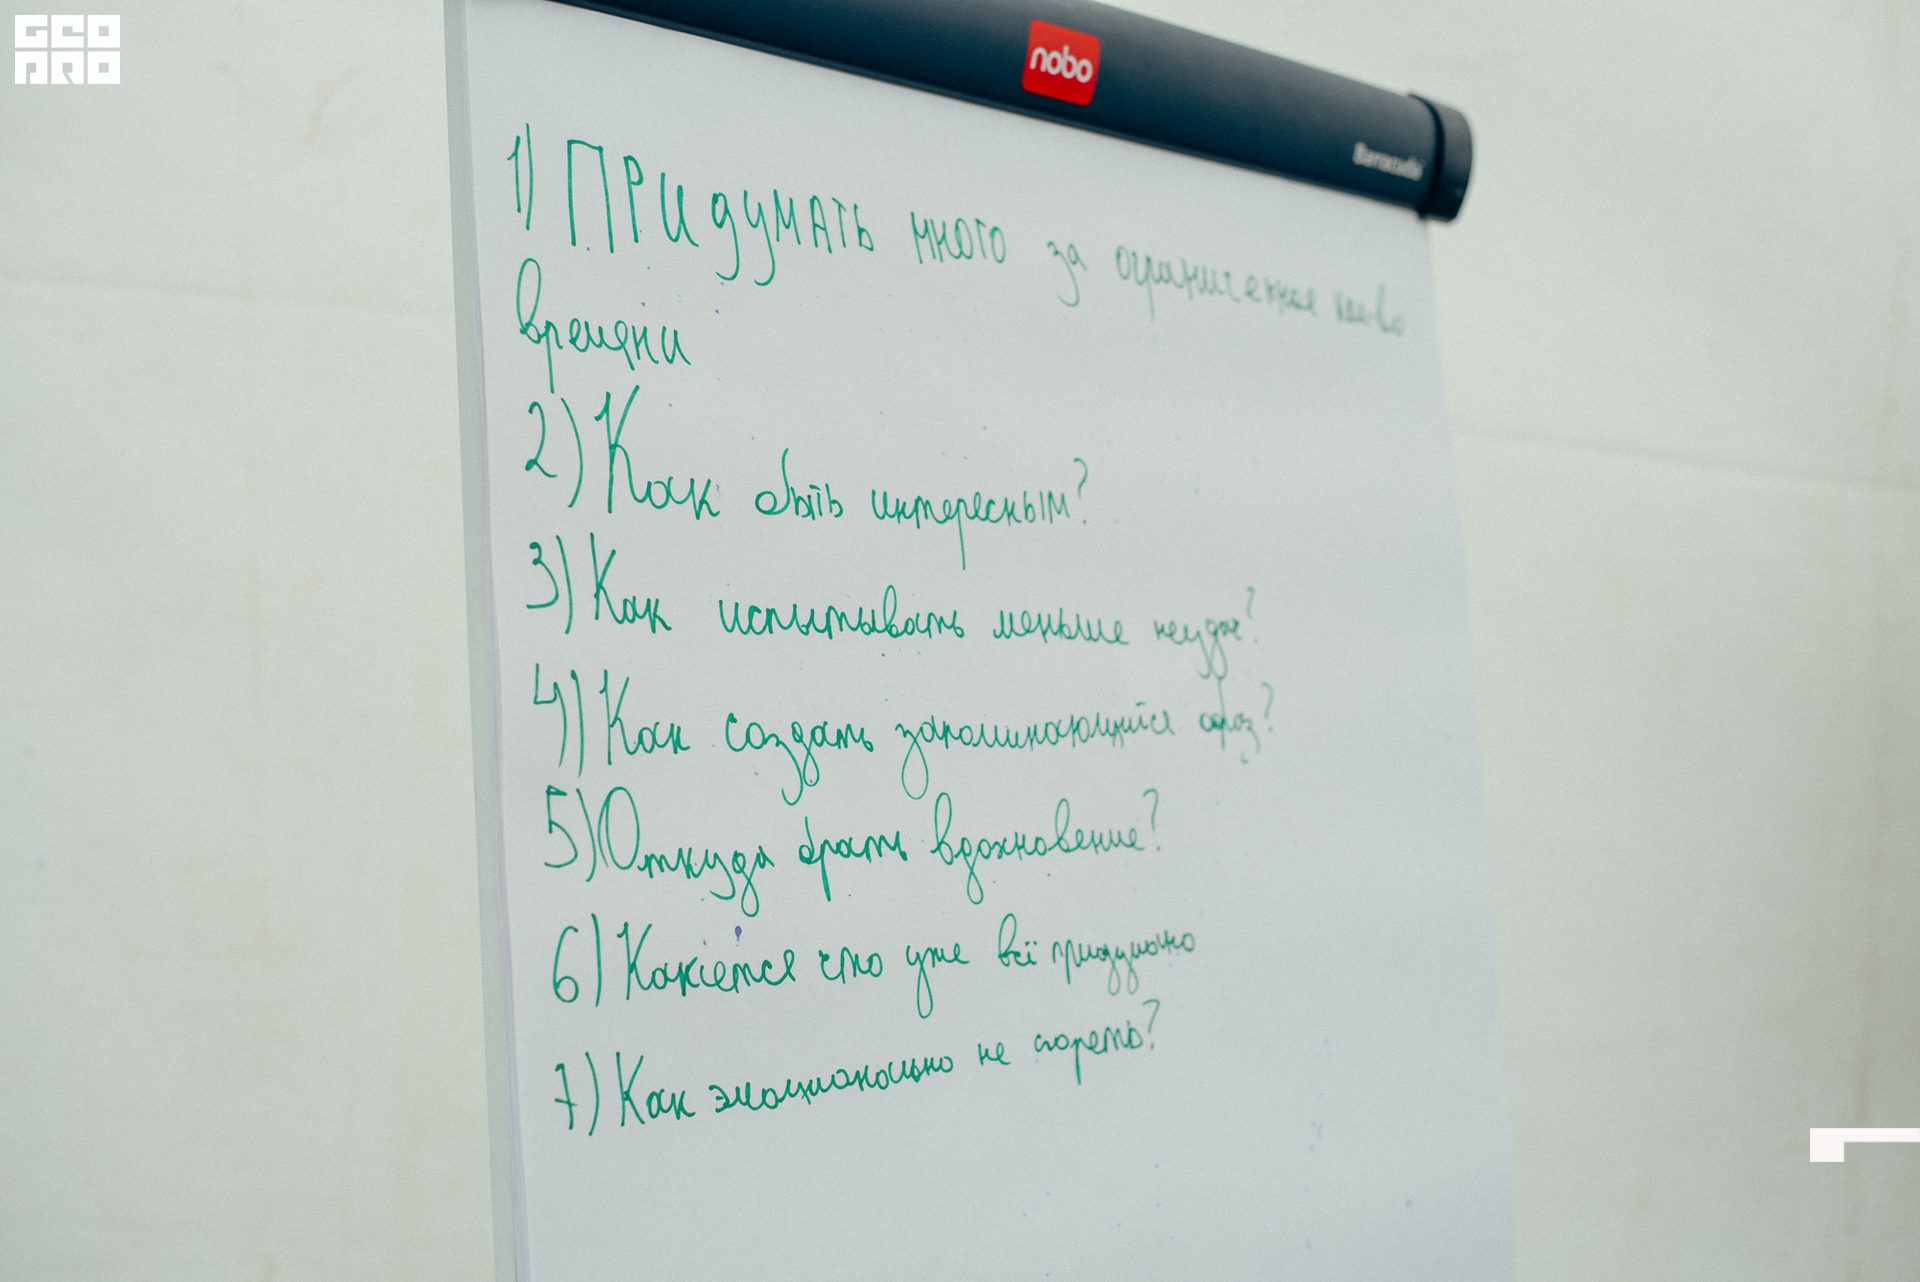 GEO
PRO
nobo
Barracuda
1) ПРИдумать много за ограниченное кол-во
времени
2) Как быть интересным?
3) Как испытывать меньше неудач?
4) Как создать запоминающийся образ?
5) Откуда брать вдохновение?
6) Кажется что уже всё придумано
7) Как эмоционально не сгореть?